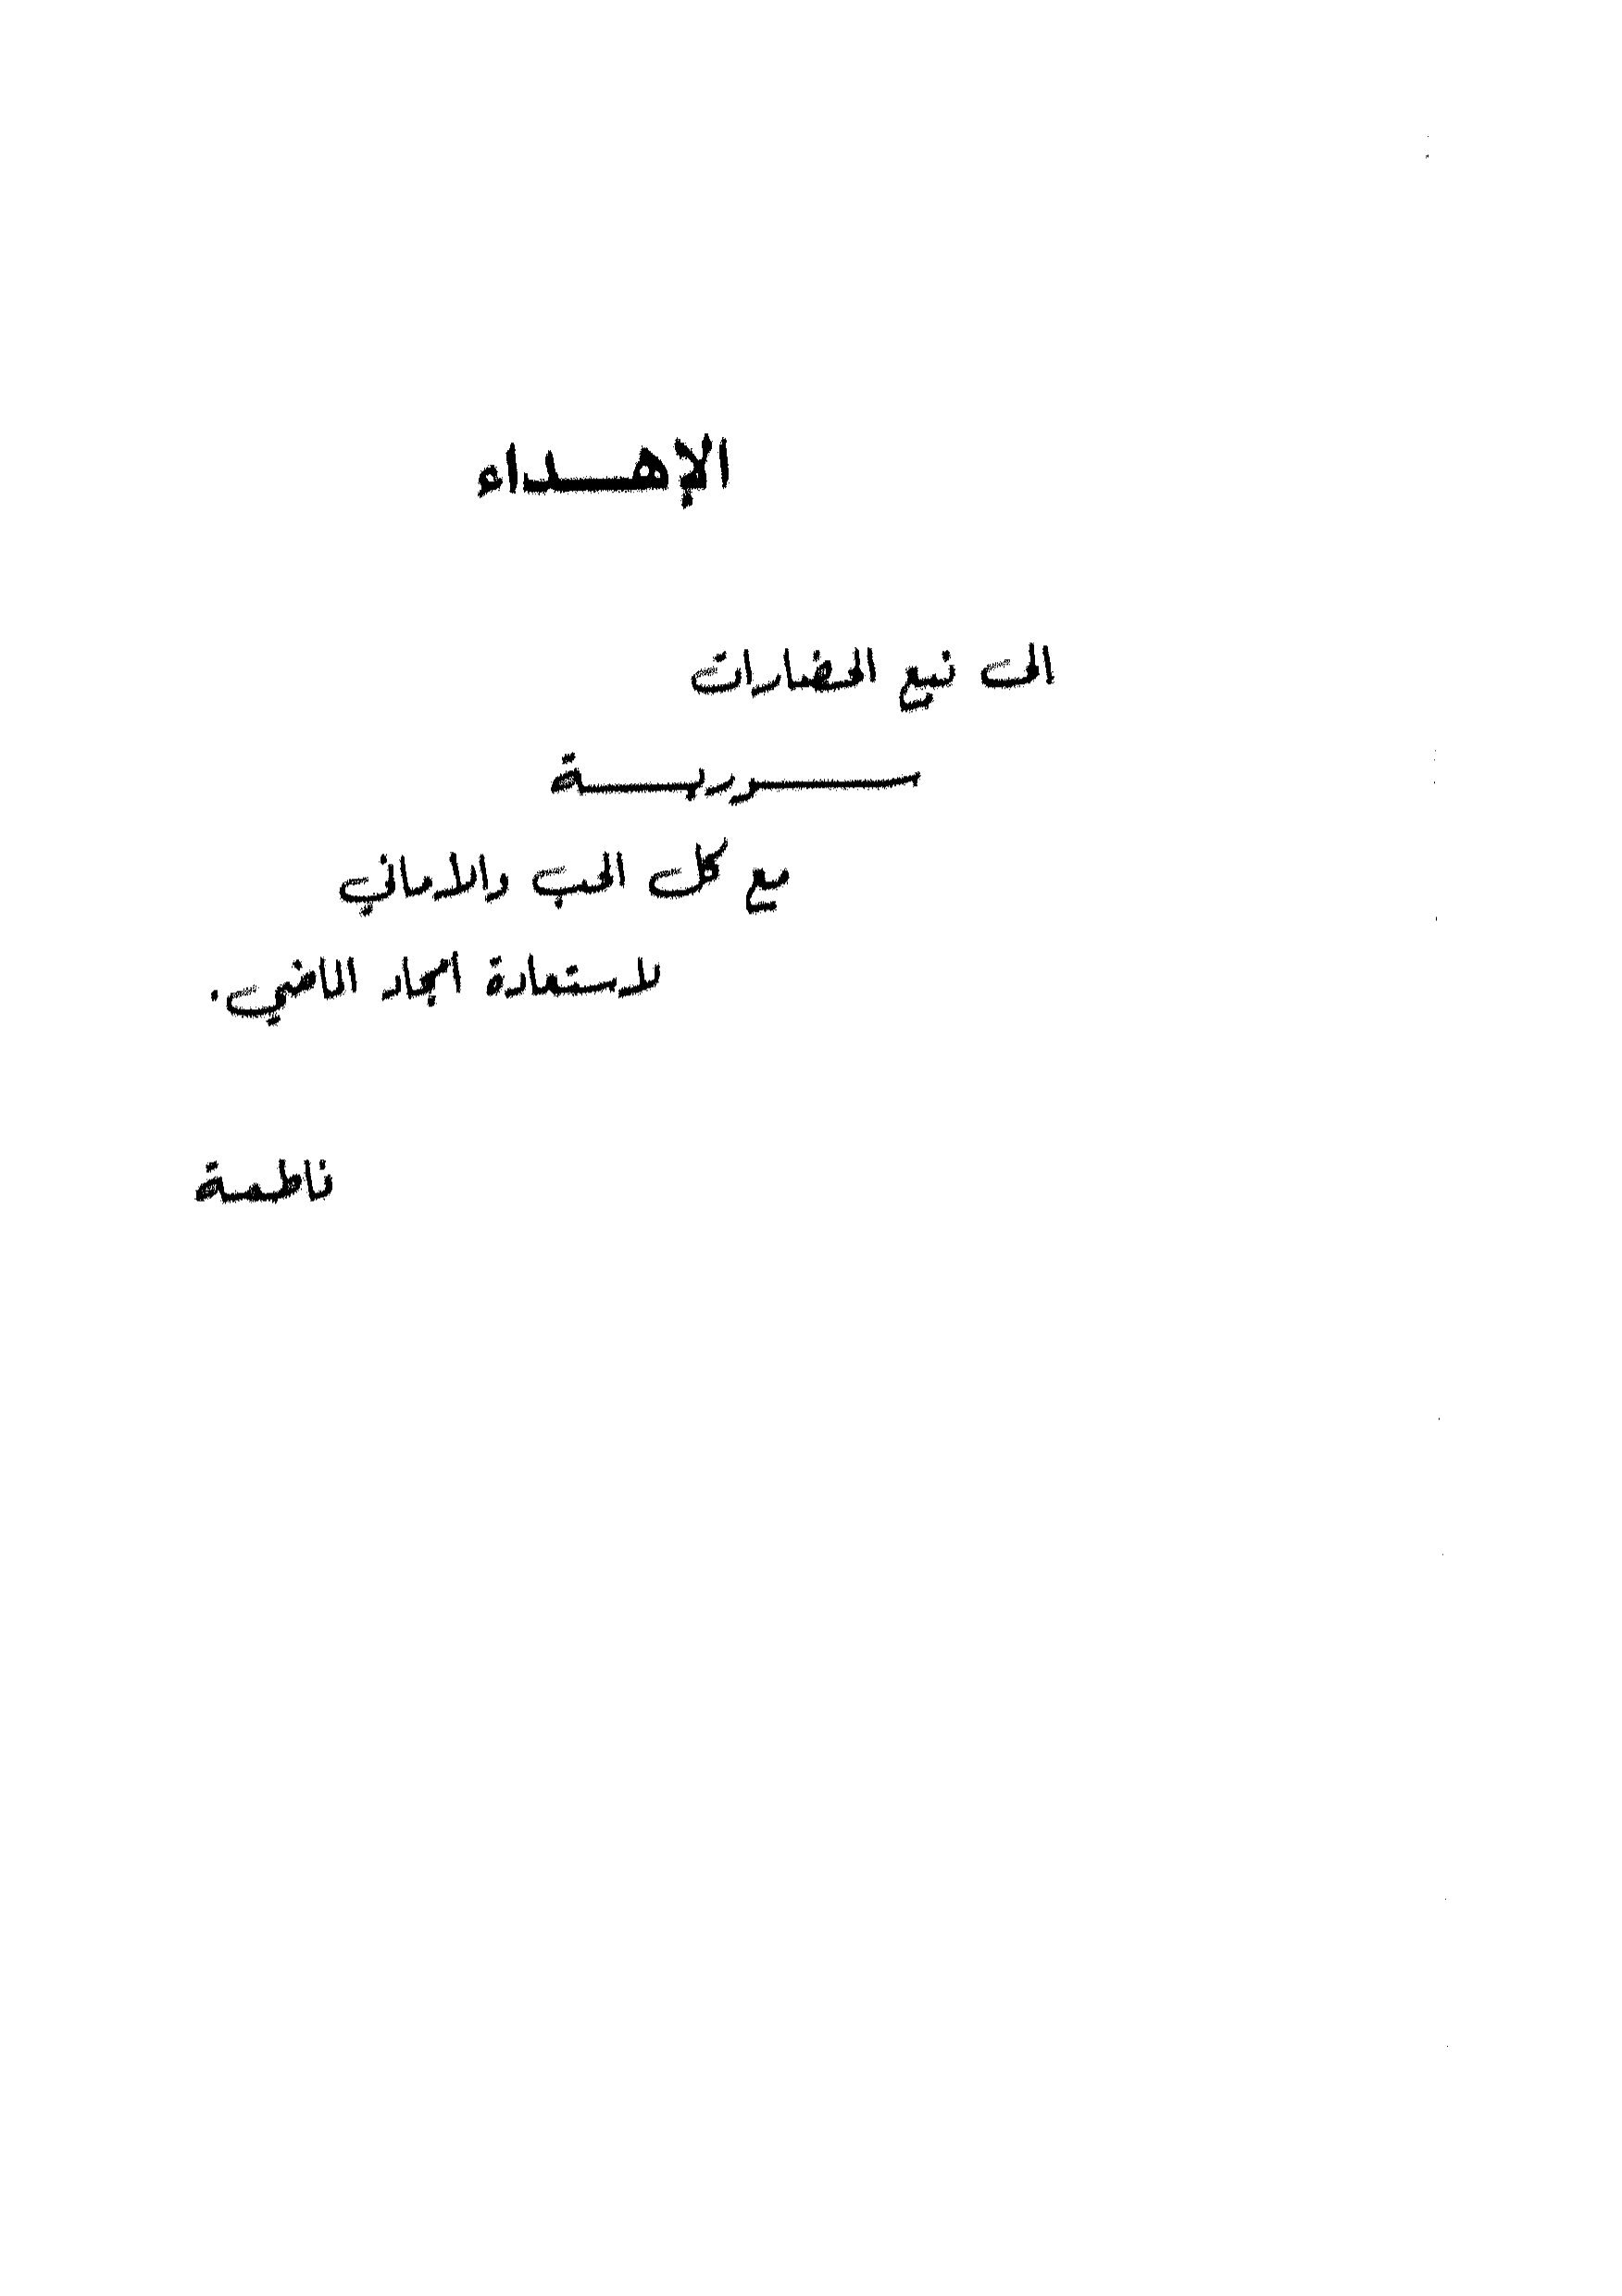 الإهداء
الى نبع الحضارات
سورية
مع كل الحب والأماني
لاستعادة امجاد الماضي.
فاطمة